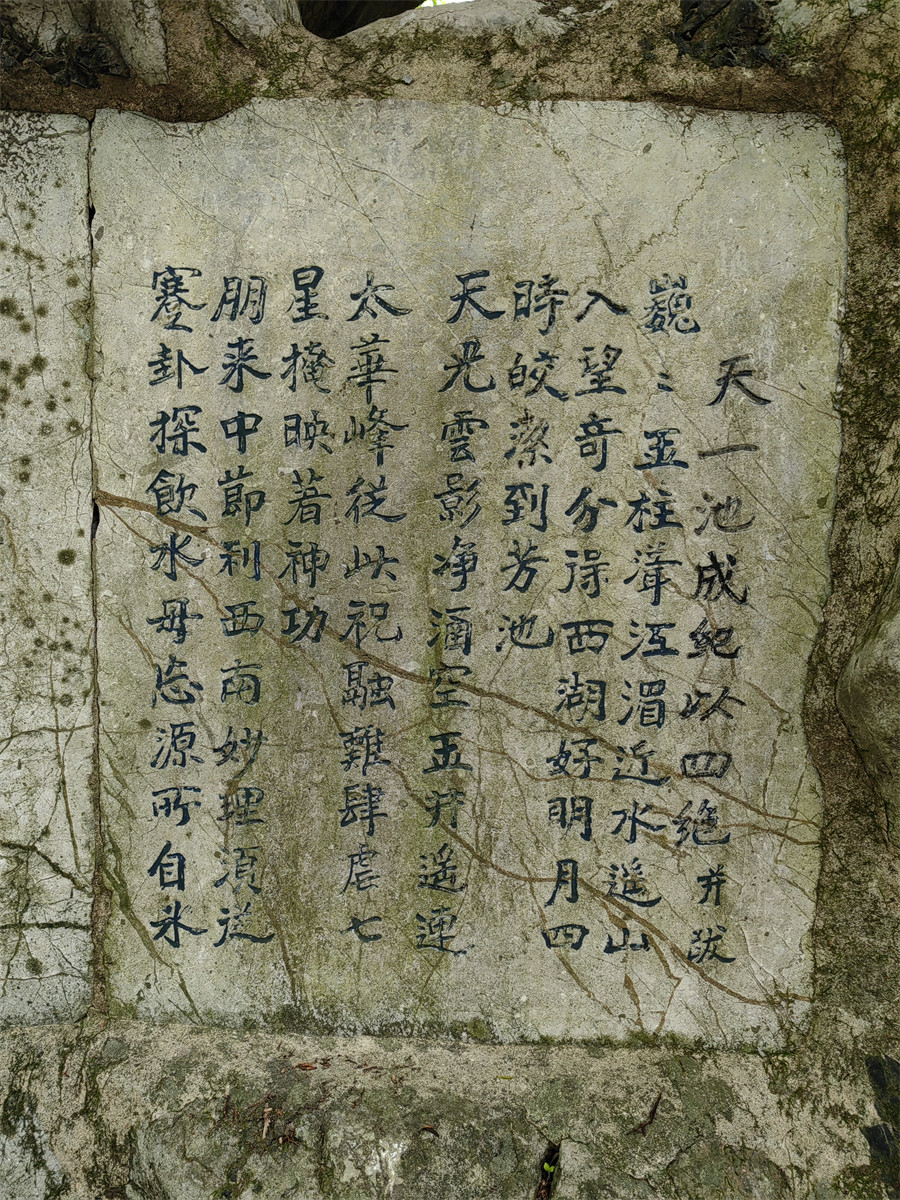 天一池成紀以四絶并跋
巍〻玉柱聳江湄近水遥山
入望奇分得西湖好明月四
時皎潔到芳池
天光雲影净涵空玉井遥連
太華峰從此祝融難肆虐七
星掩映著神功
朋来中節利西南妙理須從
蹇卦探飲水毋忘源所自氷